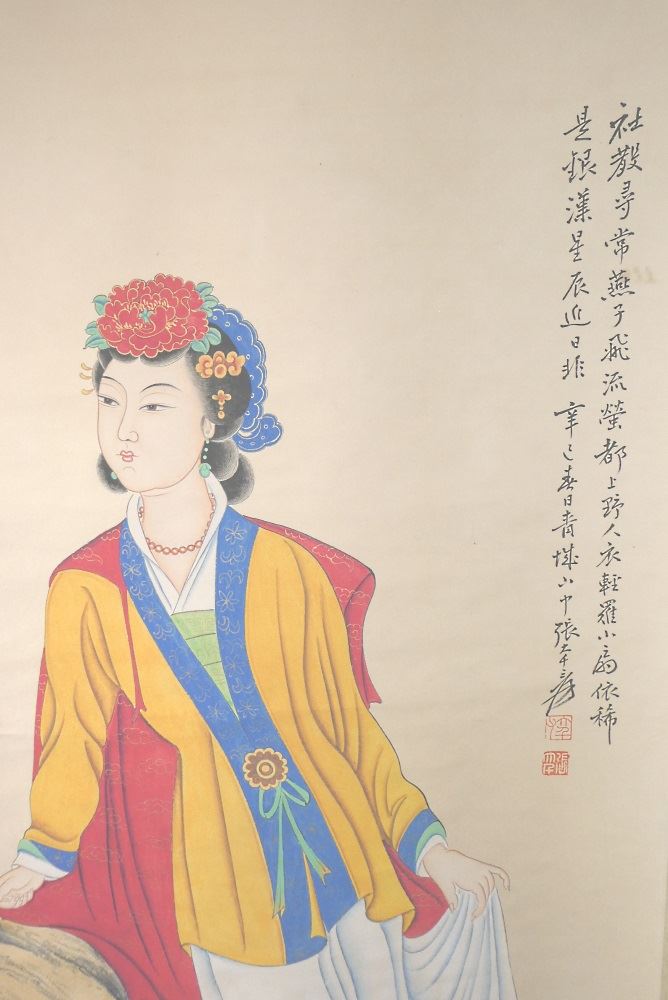 社散尋常燕子飛流螢都上野人衣輕羅小扇依稀
是銀漢星辰近日非 辛巳春日青城山中張大千爰